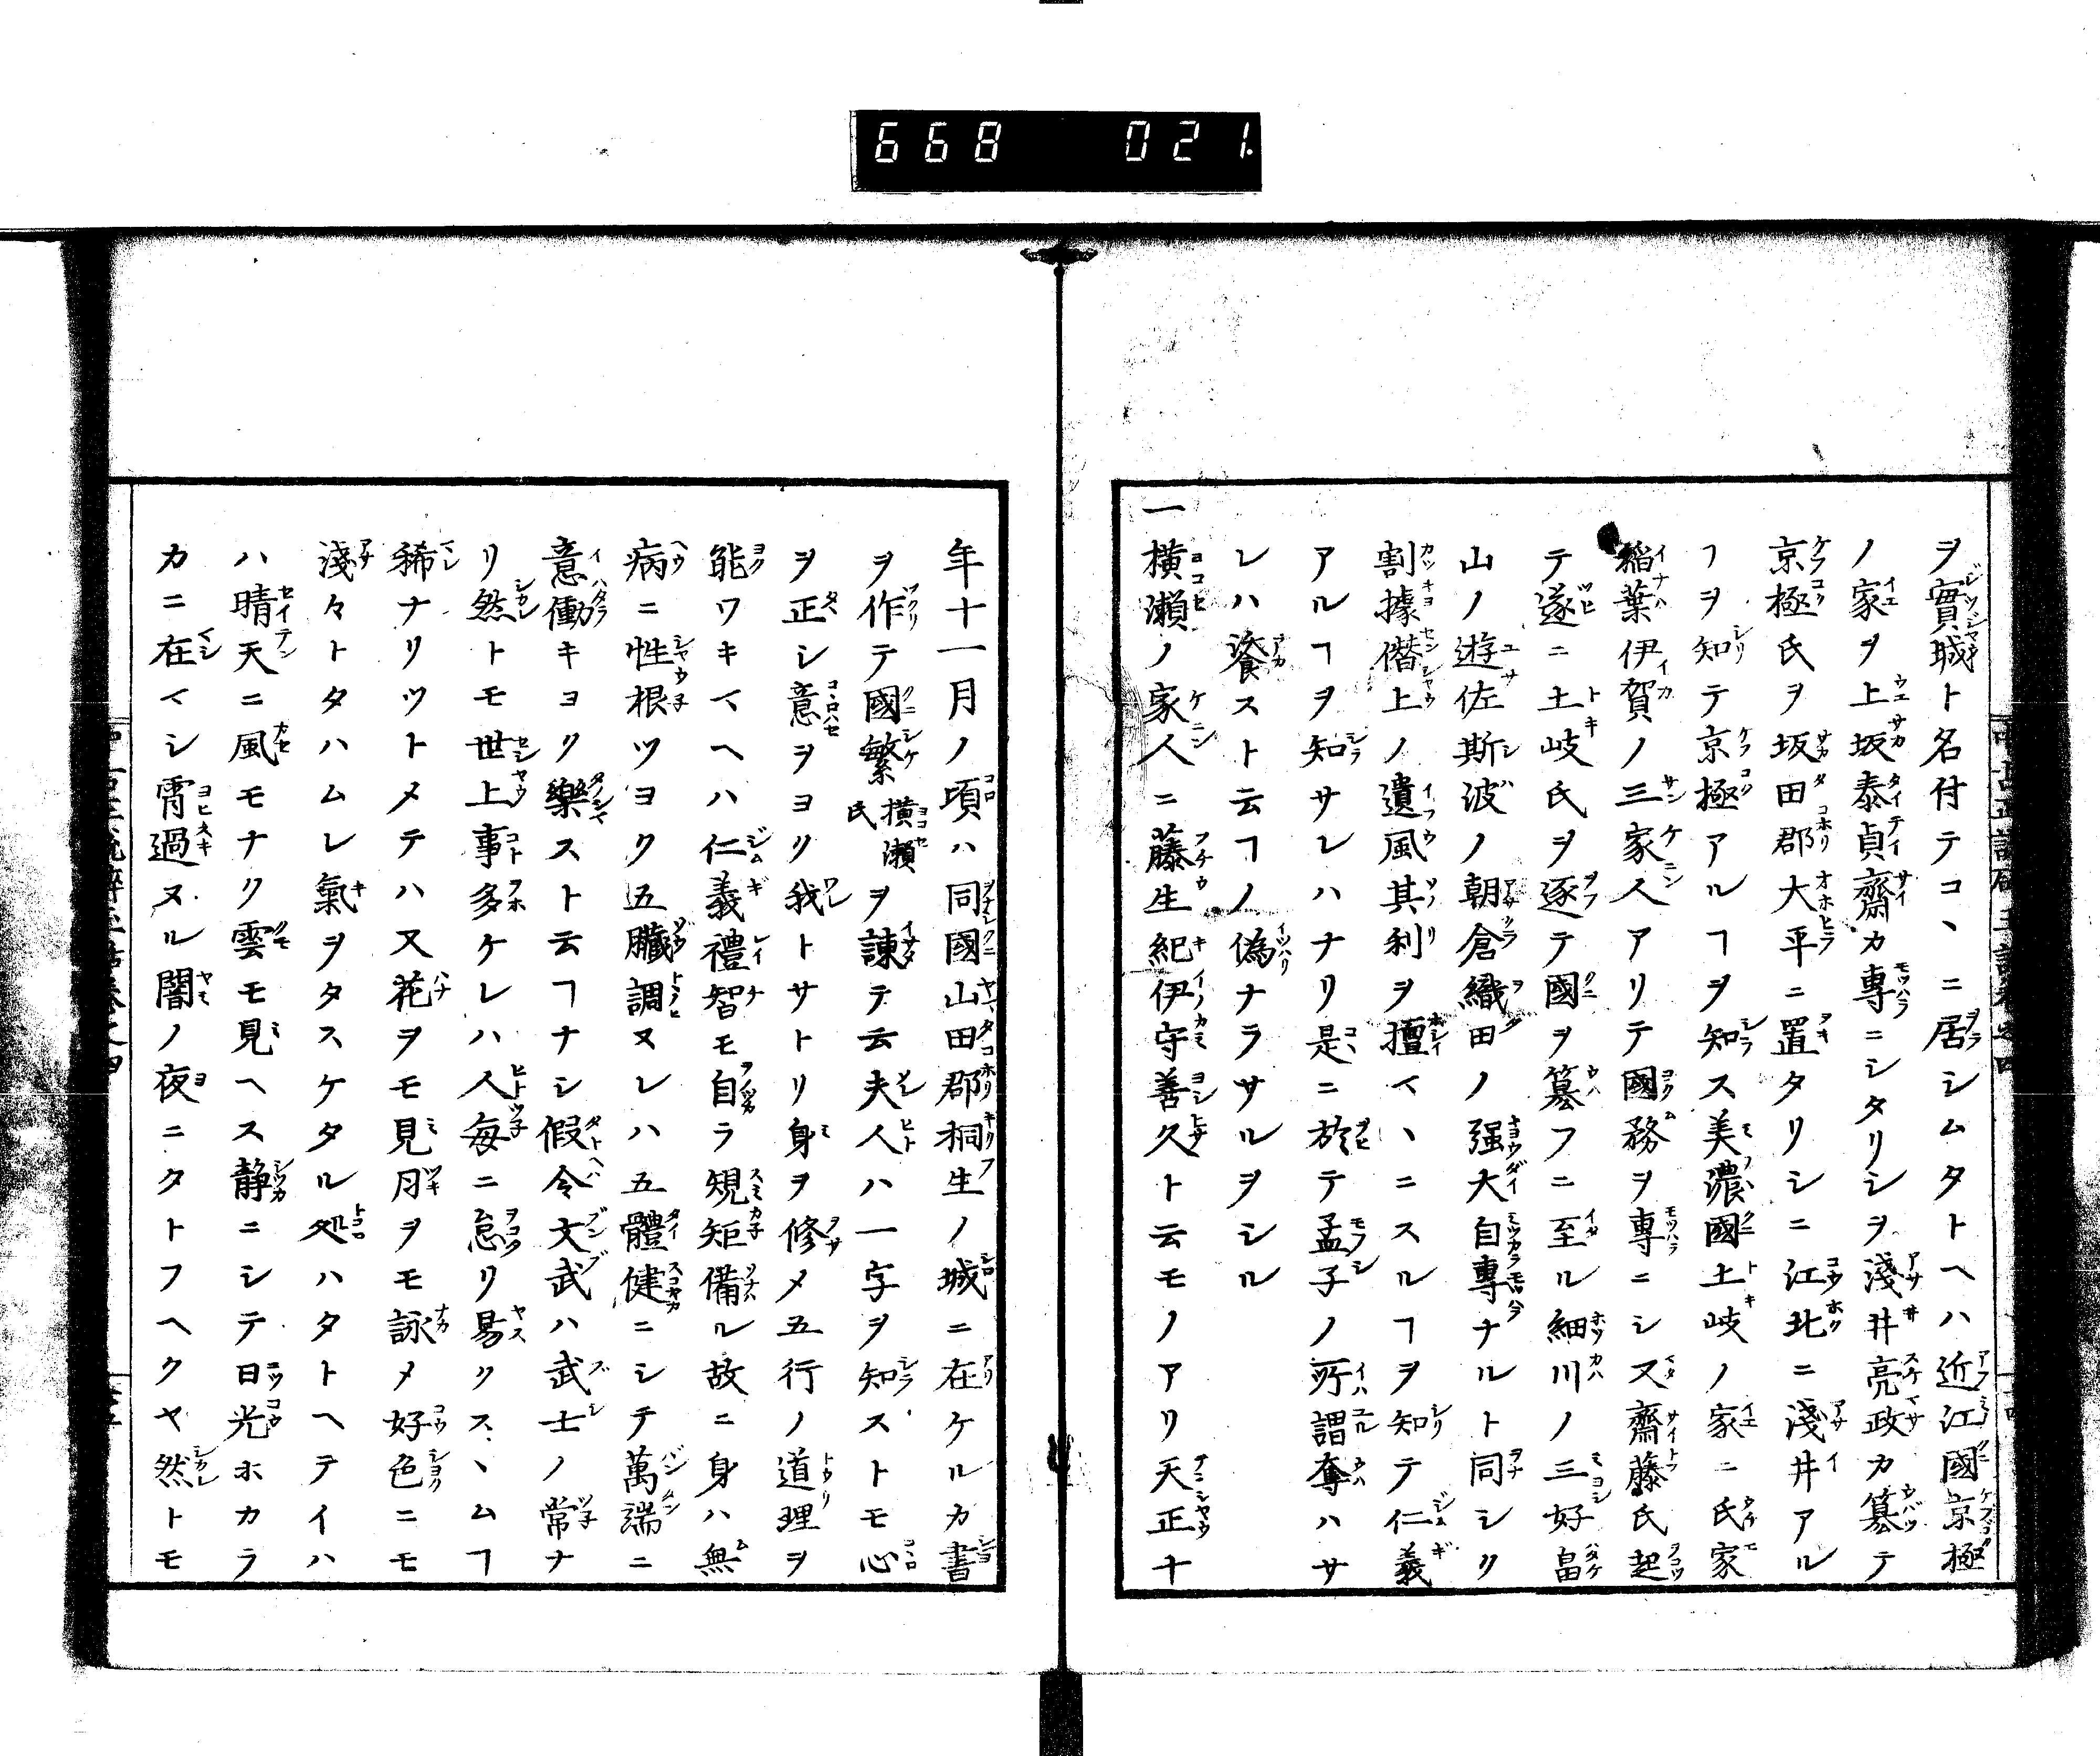 668 021
ヲ實城ト名付テコヽニ居シムタトヘハ近江國京極
ノ家ヲ上坂泰貞齋カ專ニシタリシヲ淺井亮政カ簒テ
京極氏ヲ坂田郡大平ニ置タリシニ江北ニ淺井アル
ヿヲ知テ京極アルヿヲ知ス美濃國土岐ノ家ニ氏家
稲葉伊賀ノ三家人アリテ國務ヲ專ニシ又齋藤氏起
テ遂ニ土岐氏ヲ逐テ國ヲ簒フニ至ル細川ノ三好畠
山ノ遊佐斯波ノ朝倉織田ノ强大自專ナルト同シク
割據僭上ノ遺風其利ヲ擅イヽニスルヿヲ知テ仁義
アルヿヲ知サレハナリ是ニ於テ孟子ノ所謂奪ハサ
レハ饜ストテ云フヿノ偽ナラサルヲシル
一横瀬ノ家人ニ藤生紀伊守善久ト云モノアリ天正十
年十一月ノ項ハ同國山田郡桐生ノ城ニ在ケルカ書
ヲ作テ國繁横瀬氏ヲ諫テ云夫人ハ一字ヲ知ストモ心
ヲ正シ意ヲヨリ我トサトリ身ヲ修メ五行ノ道理ヲ
能ワキイヘハ仁義禮智モ自ラ規矩備ル故ニ身ハ無
病ニ性根ツヨク五臓調ヌレハ五體健ニシテ萬端ニ
意働キヨク樂ストテ云ヿナシ假令文武ハ武士ノ常ナ
リ然トモ世上事多ケレハ人毎ニ怠リ易クスヽムヿ
稀ナリツトメテハ又花ヲモ見月ヲモ詠メ好色ニモ
淺々トタハムレ氣ヲタスケタル処ハタトヘテイハ
ハ晴天ニ風モナク雲モ見ヘス静ニシテ日光ホカラ
カニ在イシ霄過ヌル闇ノ夜ニタトフヘクヤ然トモ